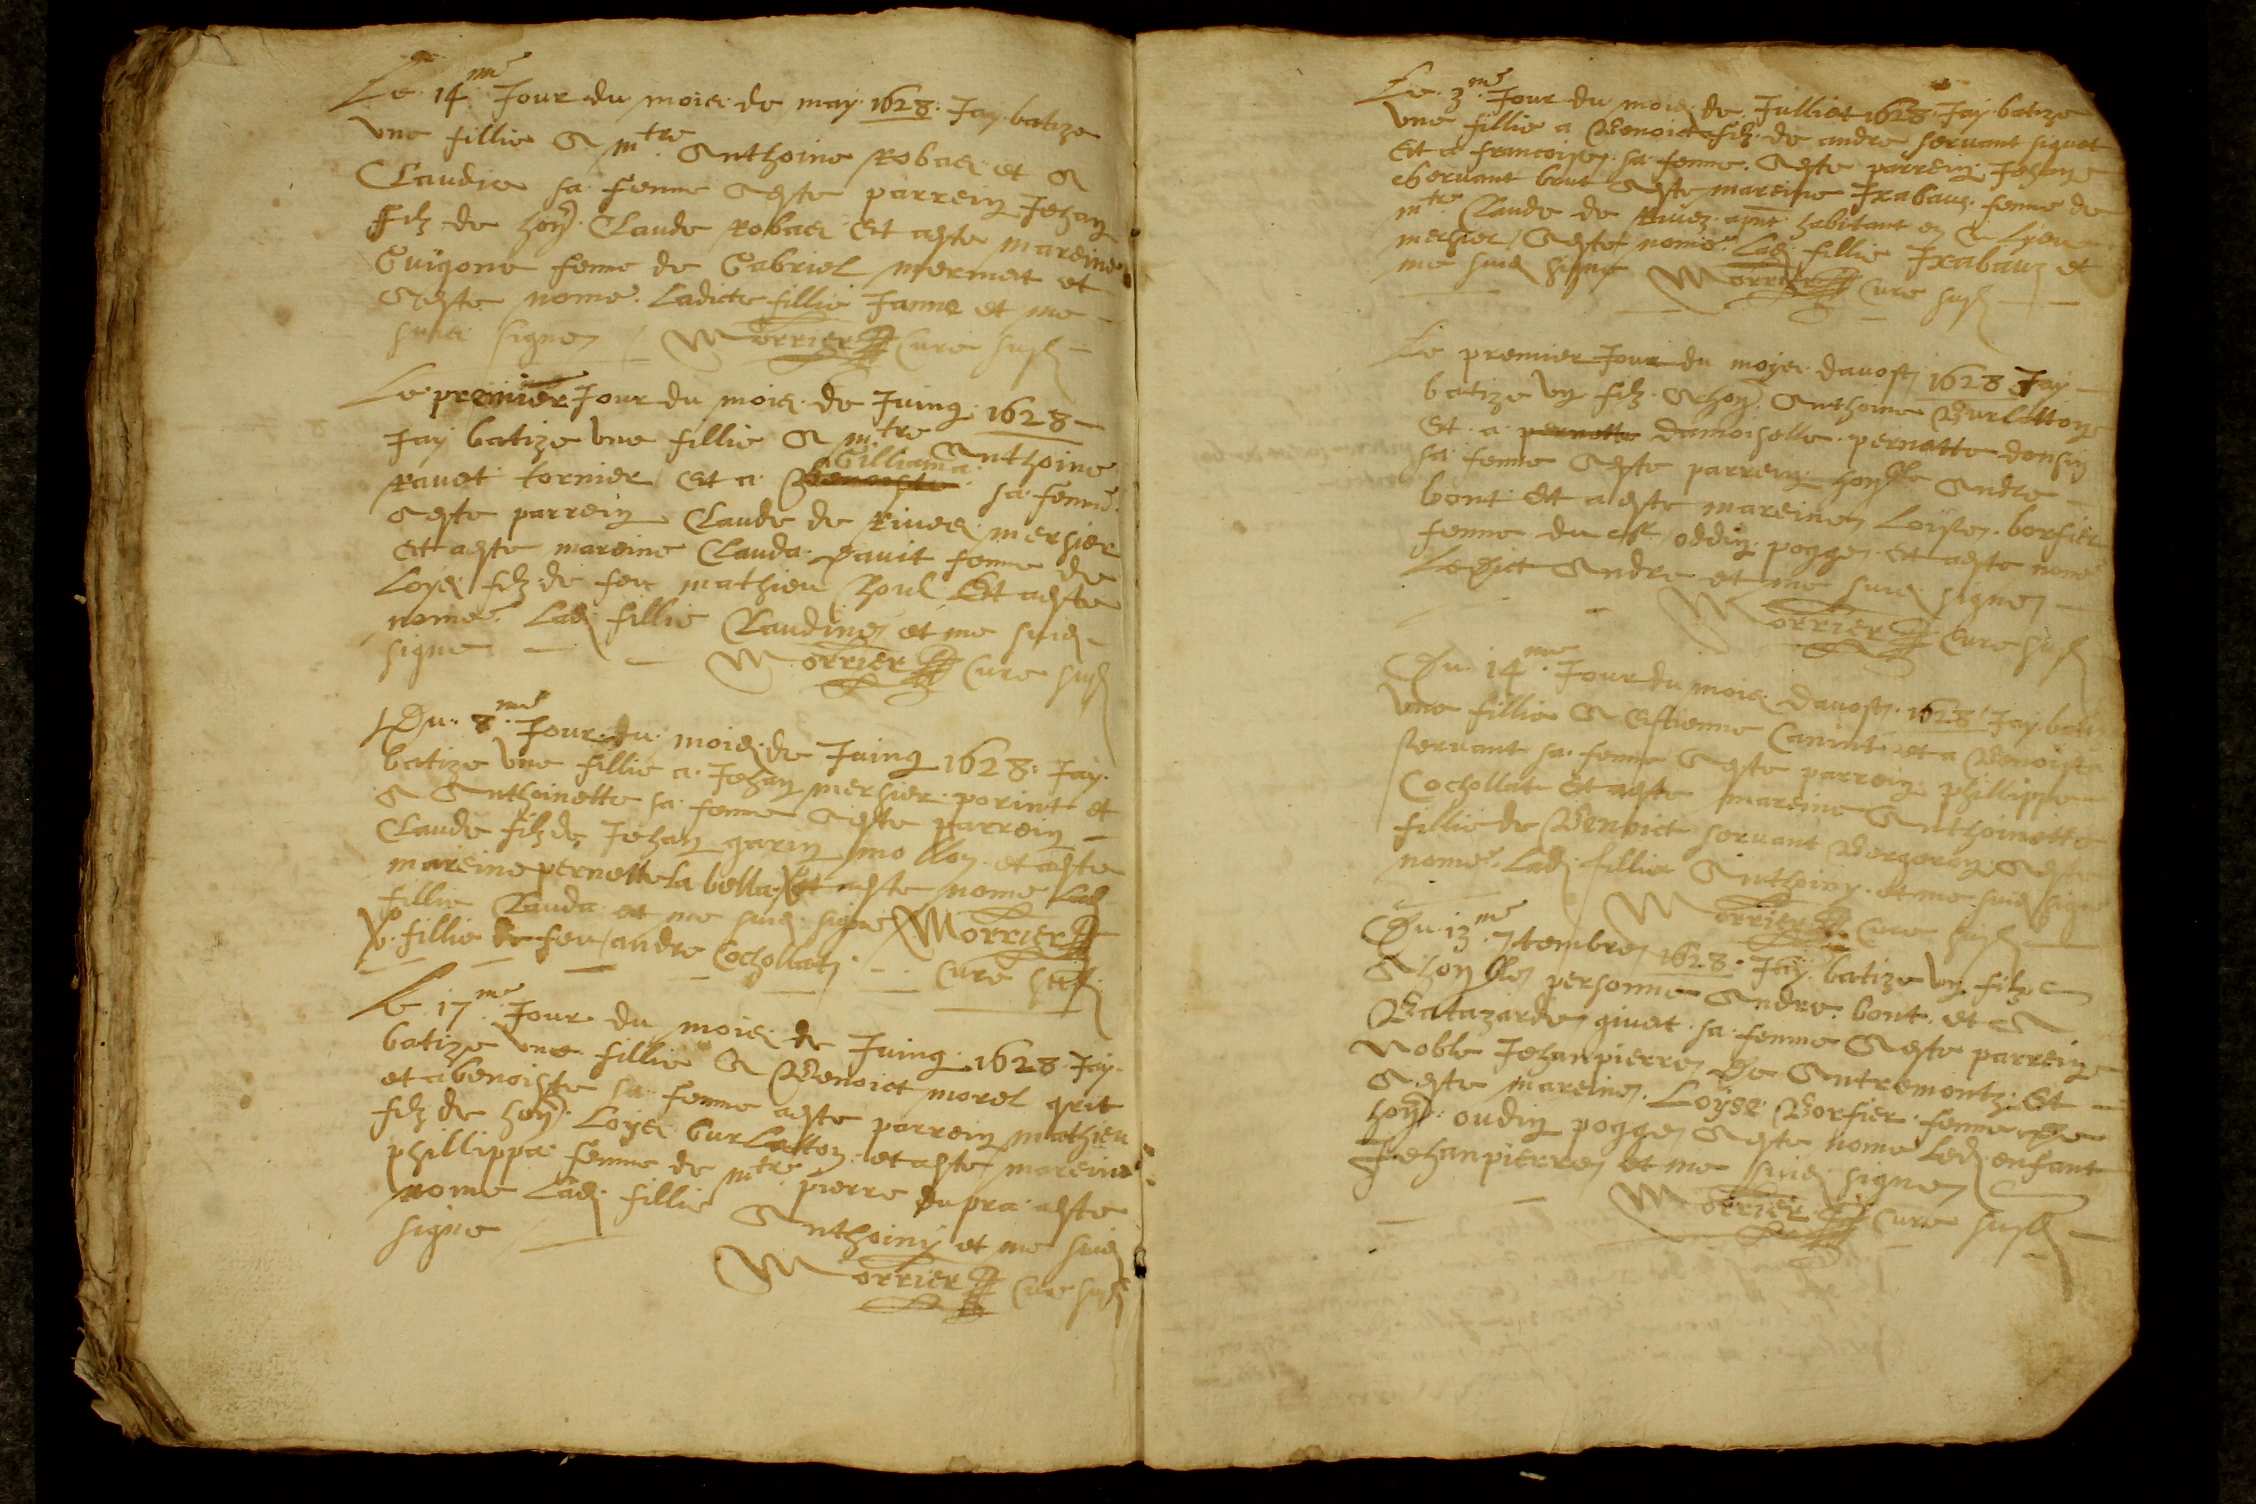 Le 14me Jour du mois de may 1628 Jay batize
une fillie A mtre Anthoine Robas et A
Claudie sa femme Aeste parrein Jehan
Filz de hon. Claude Robas Et aeste mareine
Guigone femme de Gabriel mermet et
Aeste nome Ladicte fillie Janne et me
suis signe Morrier Cure sus
Le premier Jour du mois de Juing 1628
Jay batize une fillie A mtre Anthoine
Gilliama
Ravet tornier Et a Benoiste sa femme
Aeste parrein Claude de Rives mersier
Et aeste mareine Clauda Davit femme de
Loys filz de feu mathieu Et aeste
nome Lad fillie Claudine et me suis
signe Morrier Cure sus
Du 8me Jour du mois de Juing 1628 Jay
batize une fillie a Jehan mersier porint et
A Anthoinette sa femme Aeste parrein
Claude filz de Jehan garin mollon et aeste
mareine pernette la bella Et aeste nome Lad
fillie Clauda et me suis signe Morrier
fillie de feu andre Cochollat Cure sus
Le 17me Jour du mois de Juing 1628 Jay
batize une fillie A Benoict morel grit
et a benoiste sa femme aeste parrein mathieu
filz de hon. Loys burlatton et aeste mareine
phillippa femme de mtre pierre dupra aeste
nome Lad fillie Anthoiny et me suis
signe
Morrier Cure sus
Le 3me Jour du mois de Julliet 1628 Jay batize
une fillie a Benoict filz de andre servant siguet
Et a francoise sa femme Aeste parrein Jehan
servant brut Aeste mareine Ixabaus femme de
mtre Claude de Rivez habitant en A Lyon
mersier Aeste nome Lad fillie Ixabauz et
me suis signe Morrier Cure sus
Le premier Jour du moys davost 1628 Jay
batize un filz A hon. Anthoine Burlatton
Et a pernette damoiselle pernette donsin
sa femme Aeste parrein hon Andre
bont Et a este mareine Loyse borsier
femme du oddin pogge Et aeste nome
Ledict Andre et me suis signe
Morrier Cure sus
Du 14me Jour du mois davost 1628 Jay batiz
une fillie A Estienne Canint et a Benoiste
servant sa femme Aeste parrein phillippe
Cochollat Et aeste mareine Anthoinette
fillie de Benoict servant Bergeron Aeste
nome Lad fillie Anthoiny et me suis signe
Morrier Cure sus
Du 13me 7tembre 1628 Jay batize un filz
A hon personne Andre bont et A
Batazarde givet sa femme Aeste parrein
Noble Jehanpierre De Antremontz Et
Aeste mareine Loyse Borsier femme de
hon. oudin pogge Aeste nome Led enfant
Jehanpierre et me suis signe
Morrier Cure sus